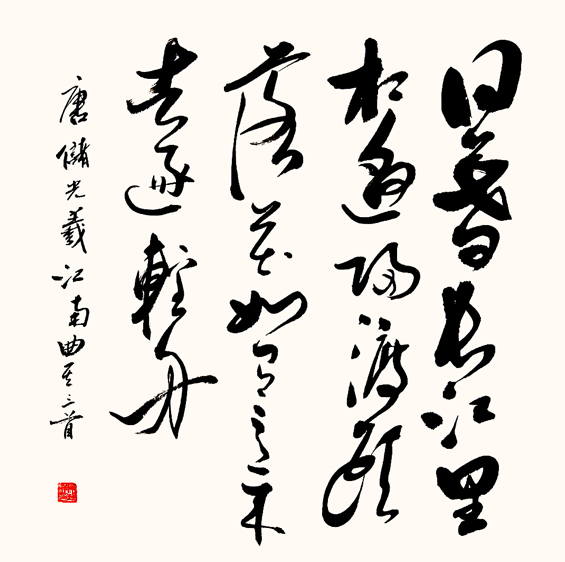 日暮長江里
相邀歸渡頭
落花如有意來
去逐輕舟
唐儲光羲江南曲其三首